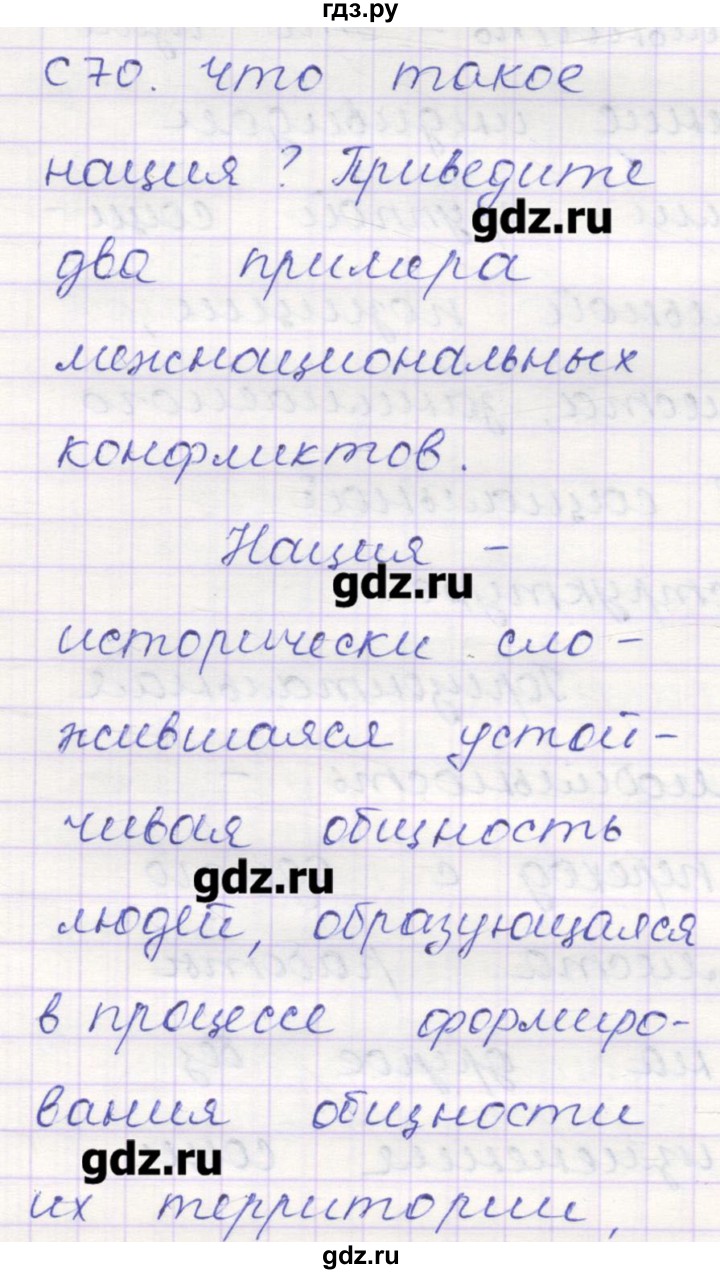 гдз.ру
С 70. Что такое
нация? Приведите
gdz.ru
два примера
межнациональных
конфликтов.
Нация -
gdz.ru
исторически сло-
жившаяся устой-
чивая общность
gdz.ru
людей, образующаяся
в процессе формиро-
вания общности
gdz.ru
их территории,
gdz.ru